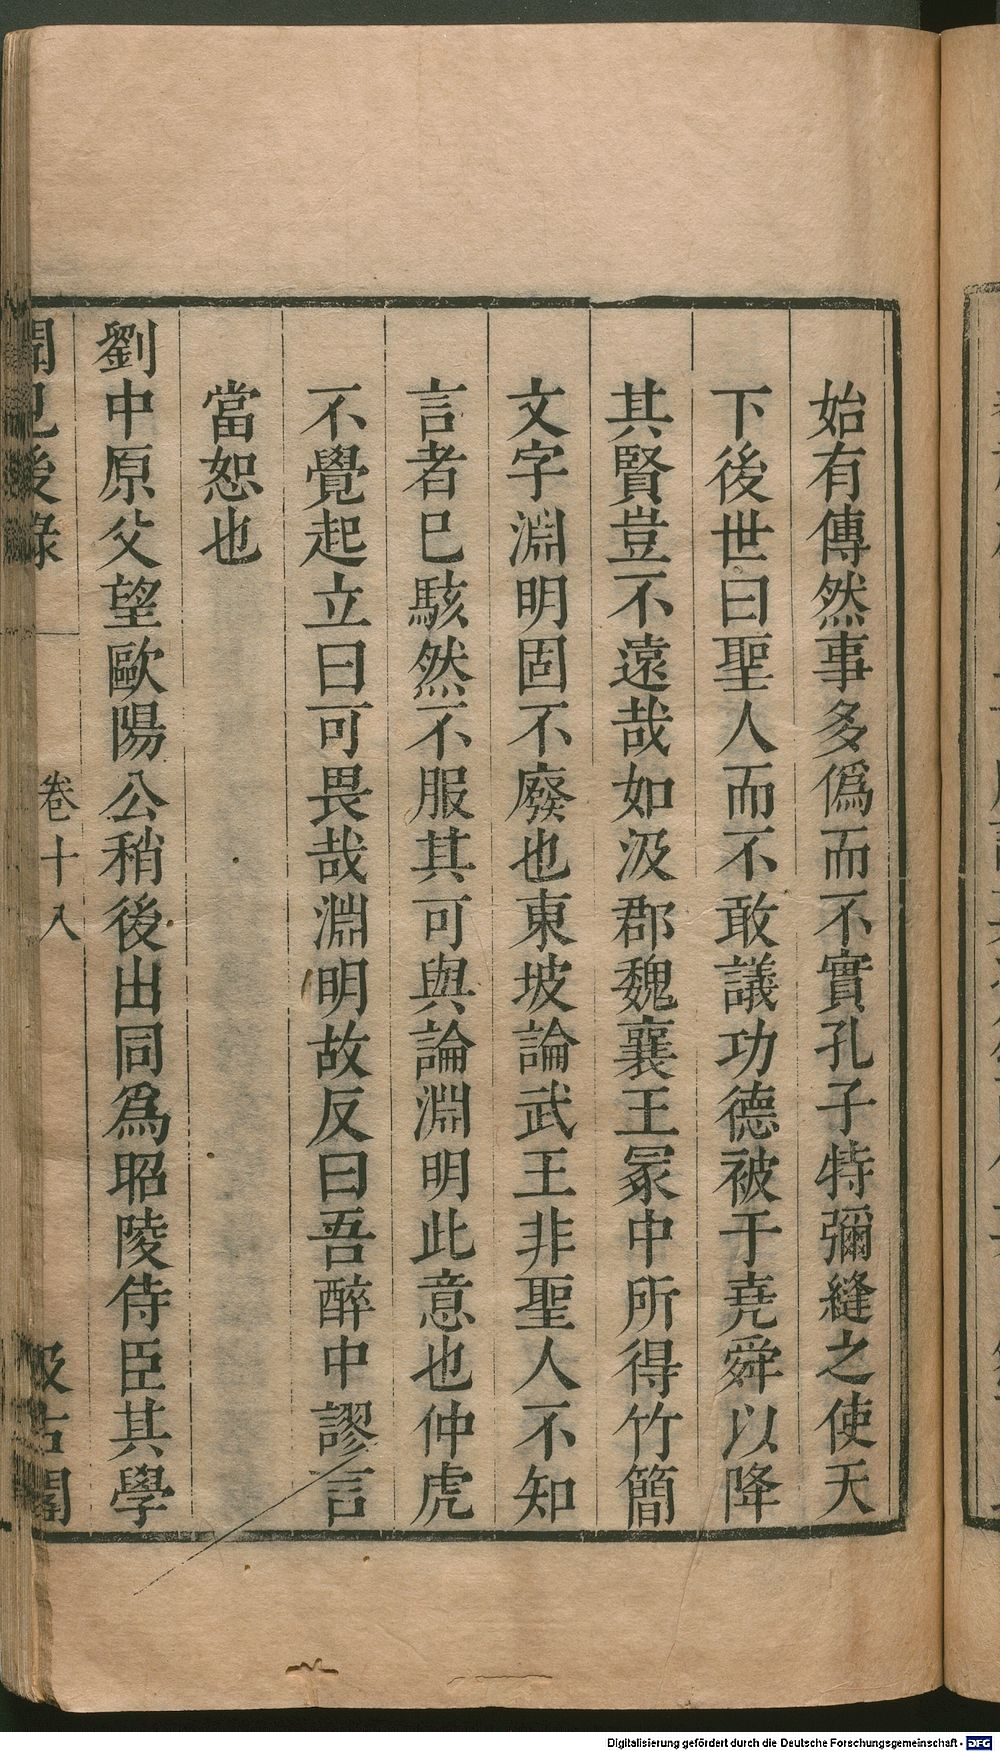 始有傳然事多僞而不實孔子特彌縫之使天
下後世曰聖人而不敢議功德被于堯舜以降
其賢豈不遠哉如汲郡魏襄王冢中所得竹簡
文字淵明固不廢也東坡論武王非聖人不知
言者巳駭然不服其可與論淵明此意也仲虎
不覺起立曰可畏哉淵明故反曰吾醉中謬言
當恕也
劉中原父望歐陽公稍後出同爲昭陵侍臣其學
聞見後錄 卷十八 汲古閣
Digitalisierung gefördert durch die Deutsche Forschungsgemeinschaft - DFG